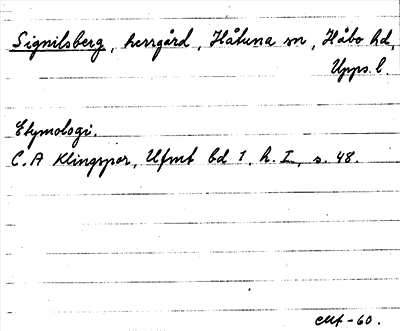 Signilsberg, herrgård, Håtuna sn, Håbo hd,
Upps. l.
Etymologi.
C. A Klingspor, Ufmt bd 1, h. I, s. 48.
-60.